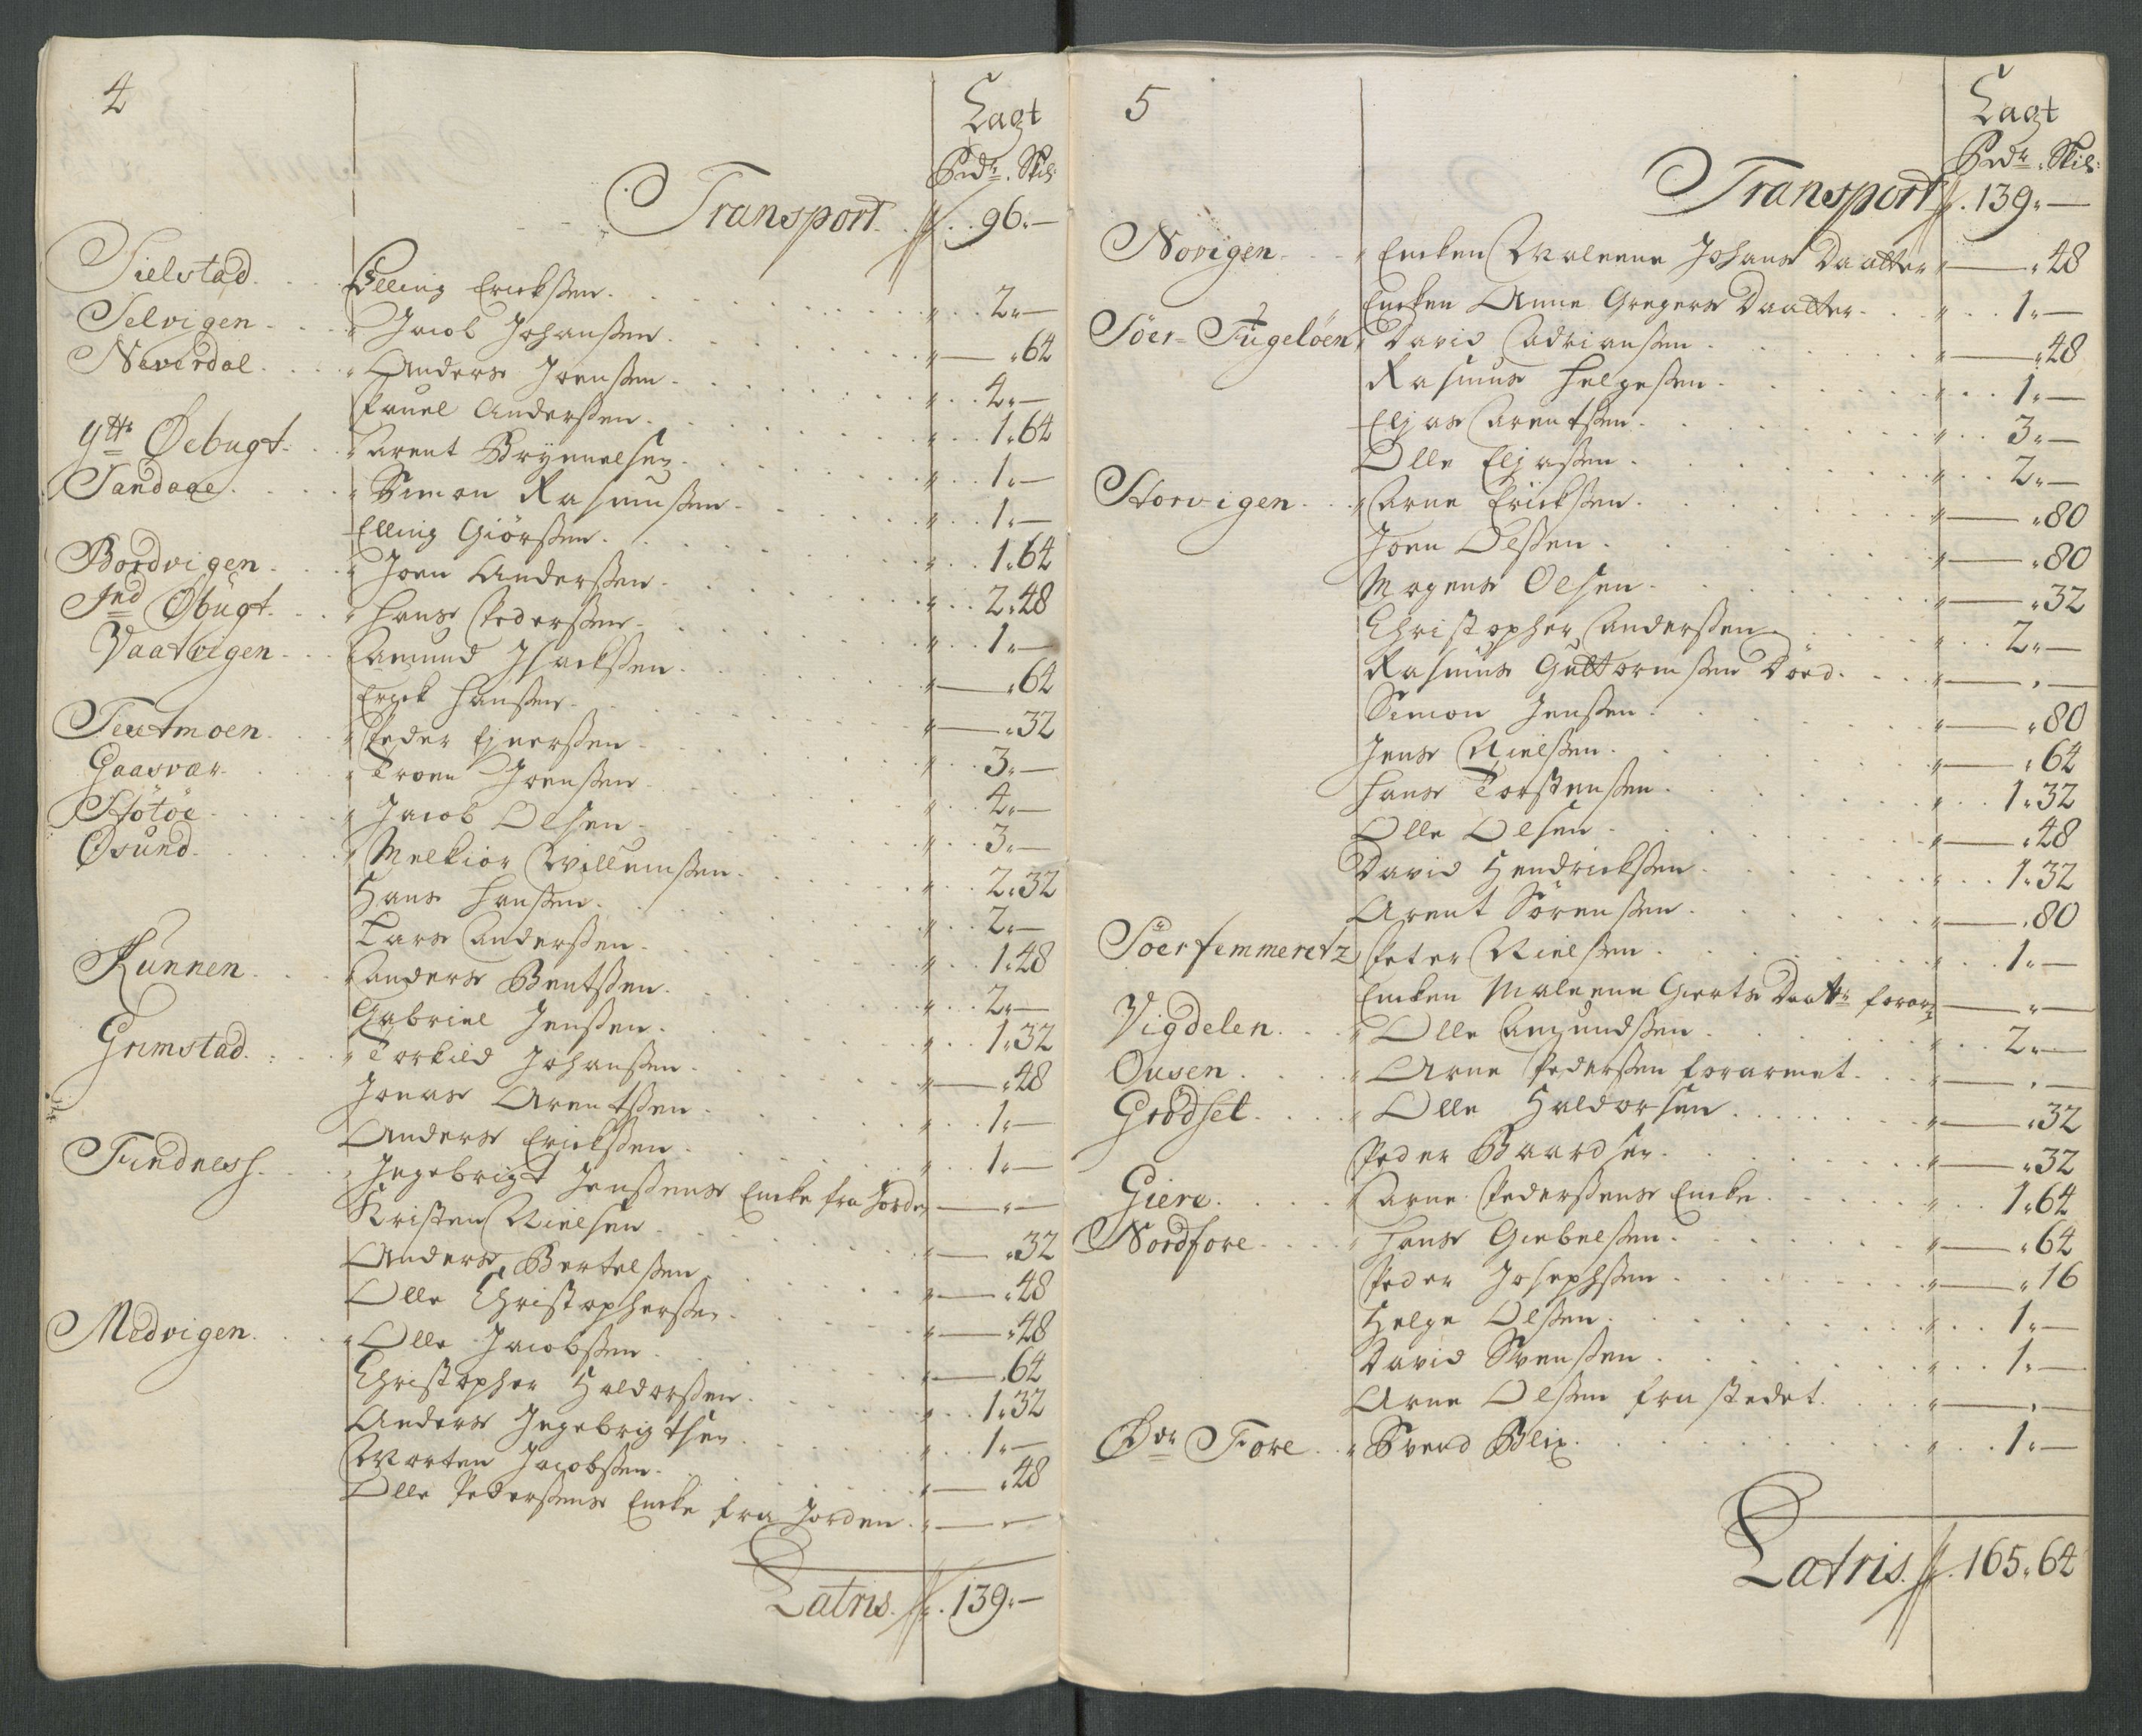 4
Lagt
Rdr. Skil:
Transport . 96 „ —
Sielstad . Elling Erichssen . 2 „ —
Selvigen . Jacob Johanssen . — „ 64
Neverdal . Anders Joenssen . 4 „ —
Pauel Anderssen . 1 „ 64
Ytt: Øebugt . Arent Brynnelsen . 1 „ —
Sandaae . Simon Rasmussen . 1 „ —
Elling Giørssen . 1 „ 64
Bordvigen . Joen Anderssen . 2 „ 48
Ind Øbugt . Hans Pederssen . 1 „ —
Vaatvigen . Amund Isachssen . — „ 64
Erich Hanssen . — „ 32
Teutmoen . Peder Ejnerssen . 3 „ —
Gaasvær . Troen Joenssen . 4 „ —
Støtøe . Jacob Olsen . 3 „ —
Øsund . Melkior Willumssen . 2 „ 32
Hans Hanssen . 2 „ —
Lars Anderssen . 1 „ 48
Kunnen . Anders Bentssen . 2 „ —
Gabriel Jenssen . 1 „ 32
Grimstad . Torkild Johanssen . — „ 48
Jonas Arentssen . 1 „ —
Anders Erichssen . 1 „ —
Fundness . Ingebrigt Jenssens Encke fra Jorden — „ —
Kristen Nielsen . — „ 32
Anders Bertelssen . — „ 48
Olle Christophersen . — „ 48
Medvigen . Olle Jacobssen . — „ 64
Christopher Haldorssen . 1 „ 32
Anders Ingebrigtsen . 1 „ —
Morten Jacobssen . — „ 48
Olle Pederssens Encke fra Jorden . — „ —
Latris . 139 „ —
5
Lagt
Rdr. Skil:
Transport . 139 „ —
Novigen . Encken Maleene Johans Daatter — „ 48
Encken Anne Gregers Daatter . 1 „ —
Söer-Fugelöen David Adrianssen . — „ 48
Rasmus Helgessen . 1 „ —
Eljas Arentssen . 3 „ —
Olle Eljassen . 2 „ —
Storvigen . Arne Erichssen . — „ 80
Joen Olssen . — „ 80
Mogens Olsen . — „ 32
Christopher Anderssen . 2 „ —
Rasmus Guttormssen Död . — „ —
Simon Jenssen . — „ 80
Jens Nielssen . — „ 64
Hans Torstenssen . 1 „ 32
Olle Olsen . — „ 48
David Hendrichssen . 1 „ 32
Arent Sörenssen . — „ 80
Söerfemmeretz Peter Nielssen . 1 „ —
Encken Maleene Gierts Daatr forarmt — „ —
Vigdelen . Olle Amundssen . 2 „ —
Ousen . Arne Pederssen forarmet . — „ —
Grödset . Olle Haldorsen . — „ 32
Peder Baardsen . — „ 32
Giere . Arne Pederssens Encke . 1 „ 64
Nordfore . Hans Giebelssen . — „ 64
Peder Josephssen . — „ 16
Helge Olssen . 1 „ —
David Svenssen . 1 „ —
Arne Olssen fra stedet . — „ —
Øvr Fore . Svend Blix . 1 „ —
Latris . 165 „ 64